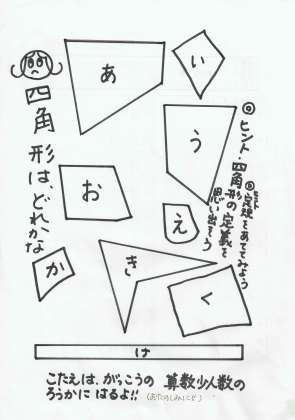 四角形は、どれかな
あ
い
う
え
お
か
き
く
け
◎ヒント・四角形の定義を思い出そう
◎ヒント定規をあててみよう
こたえは、がっこうの 算数少人数の
ろうかに はるよ!!(おたのしみにど)